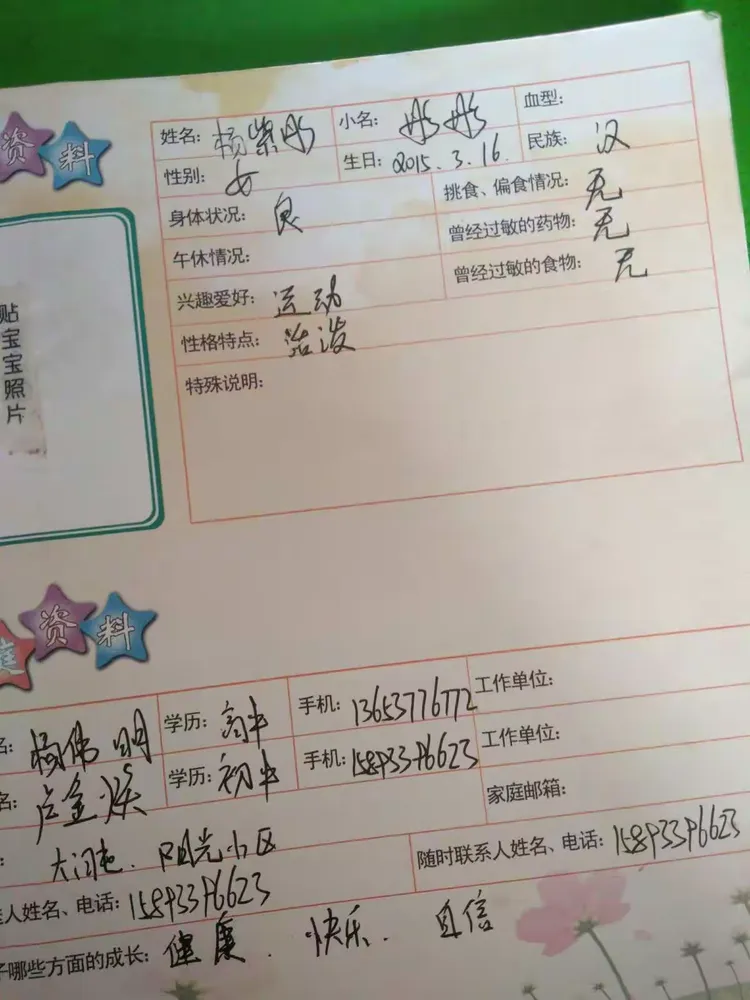 资料
姓名: 杨紫彤 小名: 彤彤 血型:
性别: 女 生日: 2015.3.16. 民族: 汉
身体状况: 良 挑食、偏食情况: 无
午休情况: 曾经过敏的药物: 无
兴趣爱好: 运动 曾经过敏的食物: 无
性格特点: 活泼
特殊说明:
贴宝宝照片
庭资料
名: 杨伟明 学历: 高中 手机: 13653776772 工作单位:
名: 卢金焕 学历: 初中 手机: 15893396623 工作单位:
家庭邮箱:
: 大门屯、阳光小区 随时联系人姓名、电话: 15893396623
人姓名、电话: 15893396623
子哪些方面的成长: 健康、快乐、自信